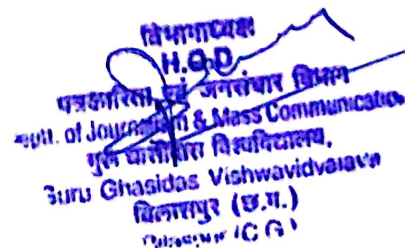 विभागाध्यक्ष
H.O.D
पत्रकारिता एवं जनसंचार विभाग
Deptt. of Journalism & Mass Communication
गुरु घासीदास विश्वविद्यालय,
Guru Ghasidas Vishwavidyalaya
बिलासपुर (छ.ग.)
Bilaspur (C.G.)